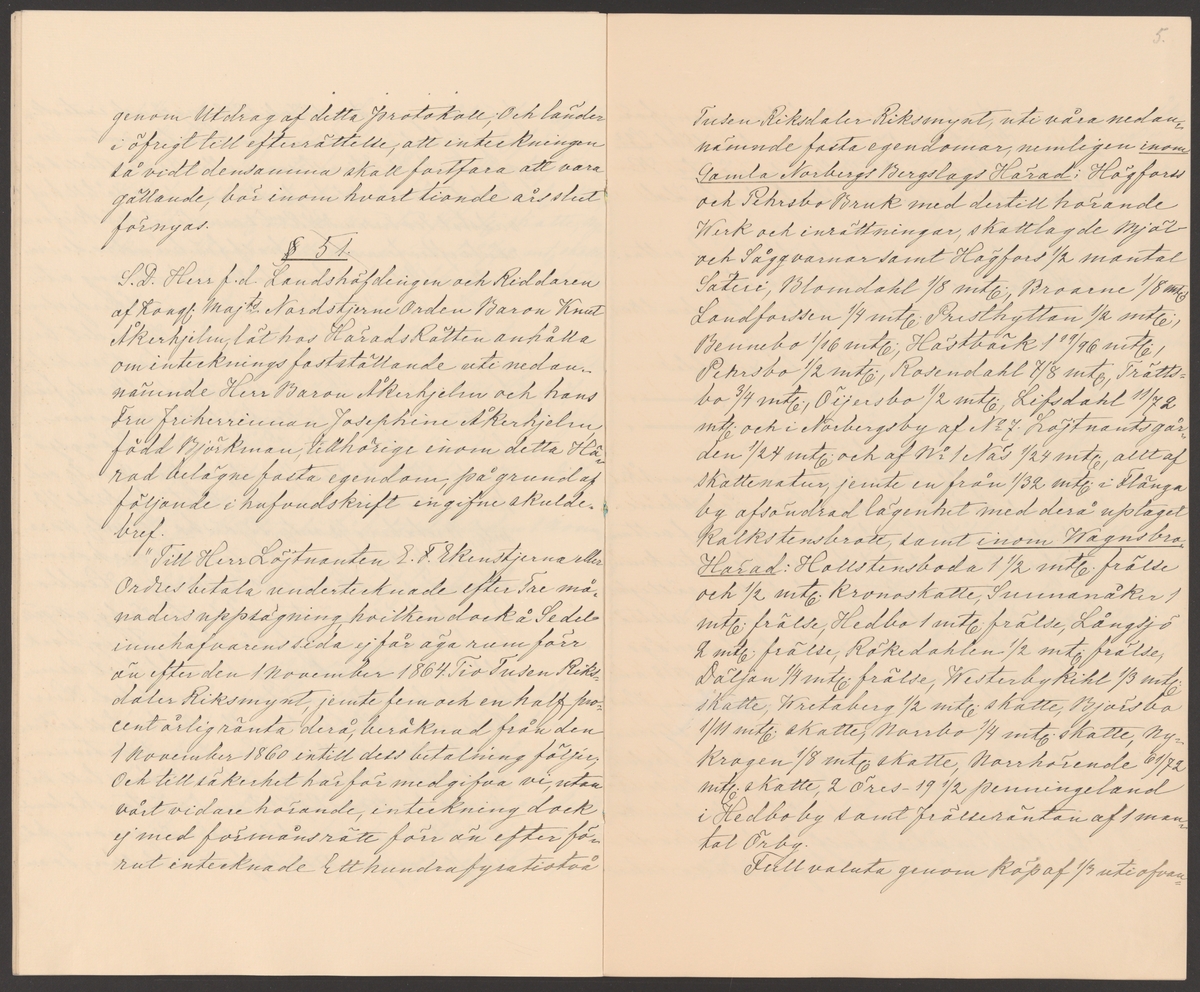 genom Utdrag af detta Protokoll. Och länder
i öfrigt till efterrättelse, att inteckningen
så vidt densamma skall fortfara att vara
gällande, bör inom hvart tionde års slut
förnyas.
§ 51.
S.D. Herr f.d. Landshöfdingen och Riddaren
af Kongl. Majts Nordstjerne Orden Baron Knut
Åkerhjelm, lät hos HäradsRätten anhålla
om inteckningsfastställande uti nedan-
nämnde Herr Baron Åkerhjelm och hans
Fru Friherrinnan Josephine Åkerhjelm
född Björkman, tillhörige inom detta Hä-
rad belägne fasta egendom, på grund af
följande i hufvudskrift ingifne skulde-
bref.
"Till Herr Löjtnanten E. F. Ekenstjerna eller
Ordres betala undertecknade efter Tre må-
naders uppsägning hvilken dock å Sedel-
innehafvarens sida ej får äga rum förr
än efter den 1 November 1864 Tio Tusen Riks-
daler Riksmynt, jemte fem och en half pro-
cent årlig ränta derå, beräknad från den
1 November 1860 intill dess betalning följer,
Och till säkerhet härför medgifva vi, utan
vårt vidare hörande, inteckning dock
ej med förmånsrätt förr än efter fö-
rut intecknade Ett hundrafyratiotvå
5.
Tusen Riksdaler Riksmynt, uti våra nedan-
nämnde fasta egendomar, nemligen inom
Gamla Norbergs Bergslags Härad: Högforss
och Pehrsbo Bruk med dertill hörande
Werk och inrättningar, skattlagde Mjöl-
och Sågqvarnar samt Högfors 1/2 mantal
Säteri, Blomdahl 1/8 mtl; Broarne 1/8 mtl;
Landforssen 1/4 mtl; Presthyttan 1/2 mtl;
Bennebo 1/16 mtl; Hästbäck 1 19/96 mtl,
Pehrsbo 1/2 mtl; Rosendahl 7/8 mtl, Trätts-
bo 3/4 mtl; Öijersbo 1/2 mtl; Lifsdahl 11/72
mtl och i Norbergsby af No 7 Löjtnantsgår-
den 1/24 mtl; och af No 1 Näs 1/24 mtl, allt af
skattenatur, jemte en från 1/32 mtl; i Flänga
by afsöndrad lägenhet med derå uptaget
Kalkstensbrott, samt inom Wagnsbro
Härad: Hallstensboda 1 1/2 mtl; frälse
och 1/2 mtl; Kronoskatte, Sunnanåker 1
mtl; frälse, Hedbo 1 mtl; frälse, Långsjö
2 mtl; frälse, Rökedahlen 1/2 mtl; frälse,
Däljan 1/4 mtl; frälse, Westerbykihl 1/3 mtl;
skatte, Wretaberg 1/2 mtl; skatte, Björsbo
1/11 mtl; skatte, Norrbo 1/4 mtl; skatte, Ny-
krogen 1/8 mtl; skatte, Norrhörende 61/72
mtl; skatte, 2 Öres- 19 1/2 penningeland
i Hedboby samt frälseräntan af 1 man-
tal Örby.
Full valuta genom köp af 1/3 uti ofvan-